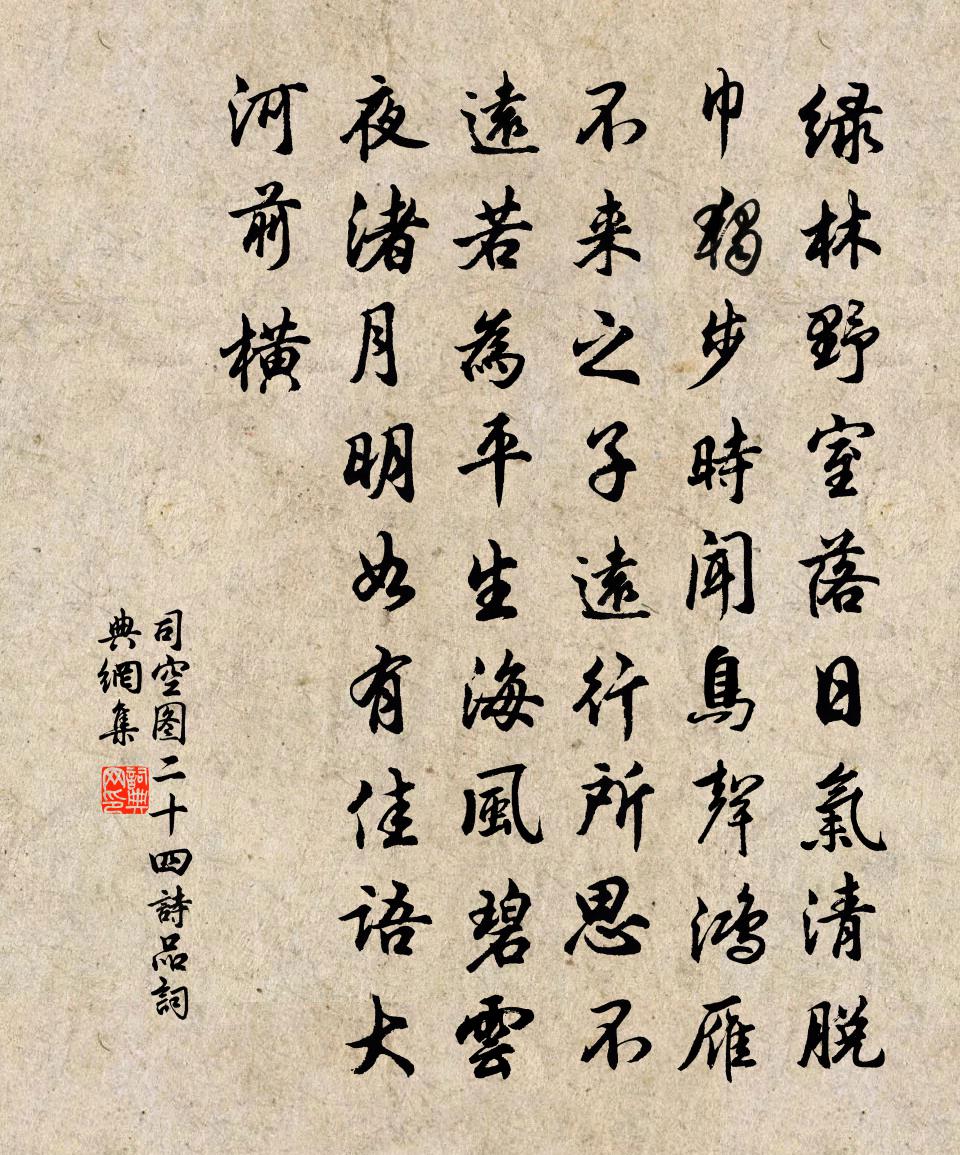 緑林野室落日氣清脱
巾獨步時聞鳥聲鴻雁
不来之子遠行所思不
遠若為平生海風碧雲
夜渚月明如有佳語大
河前橫
司空图二十四詩品詞
典網集
詞典
网印